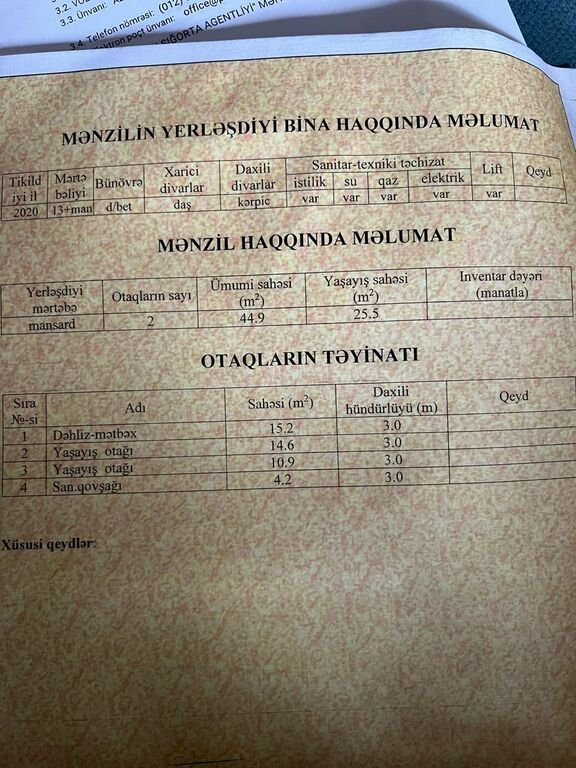 3.2. 
3.3. Ünvanı: 
3.4. Telefon nömrəsi: (012)
poçt ünvanı: office@
SIĞORTA AGENTLİYİ"
MƏNZİLİN YERLƏŞDİYİ BİNA HAQQINDA MƏLUMAT
Tikild iyi il Mərtə bəliyi Bünövrə Xarici divarlar Daxili divarlar Sanitar-texniki təchizat Lift Qeyd
istilik su qaz elektrik
2020 13+man d/bet daş kərpic var var var var var
MƏNZİL HAQQINDA MƏLUMAT
Yerləşdiyi mərtəbə Otaqların sayı Ümumi sahəsi (m²) Yaşayış sahəsi (m²) Inventar dəyəri (manatla)
mansard 2 44.9 25.5
OTAQLARIN TƏYİNATI
Sıra №-si Adı Sahəsi (m²) Daxili hündürlüyü (m) Qeyd
1 Dəhliz-mətbəx 15.2 3.0
2 Yaşayış otağı 14.6 3.0
3 Yaşayış otağı 10.9 3.0
4 San.qovşağı 4.2 3.0
Xüsusi qeydlər: